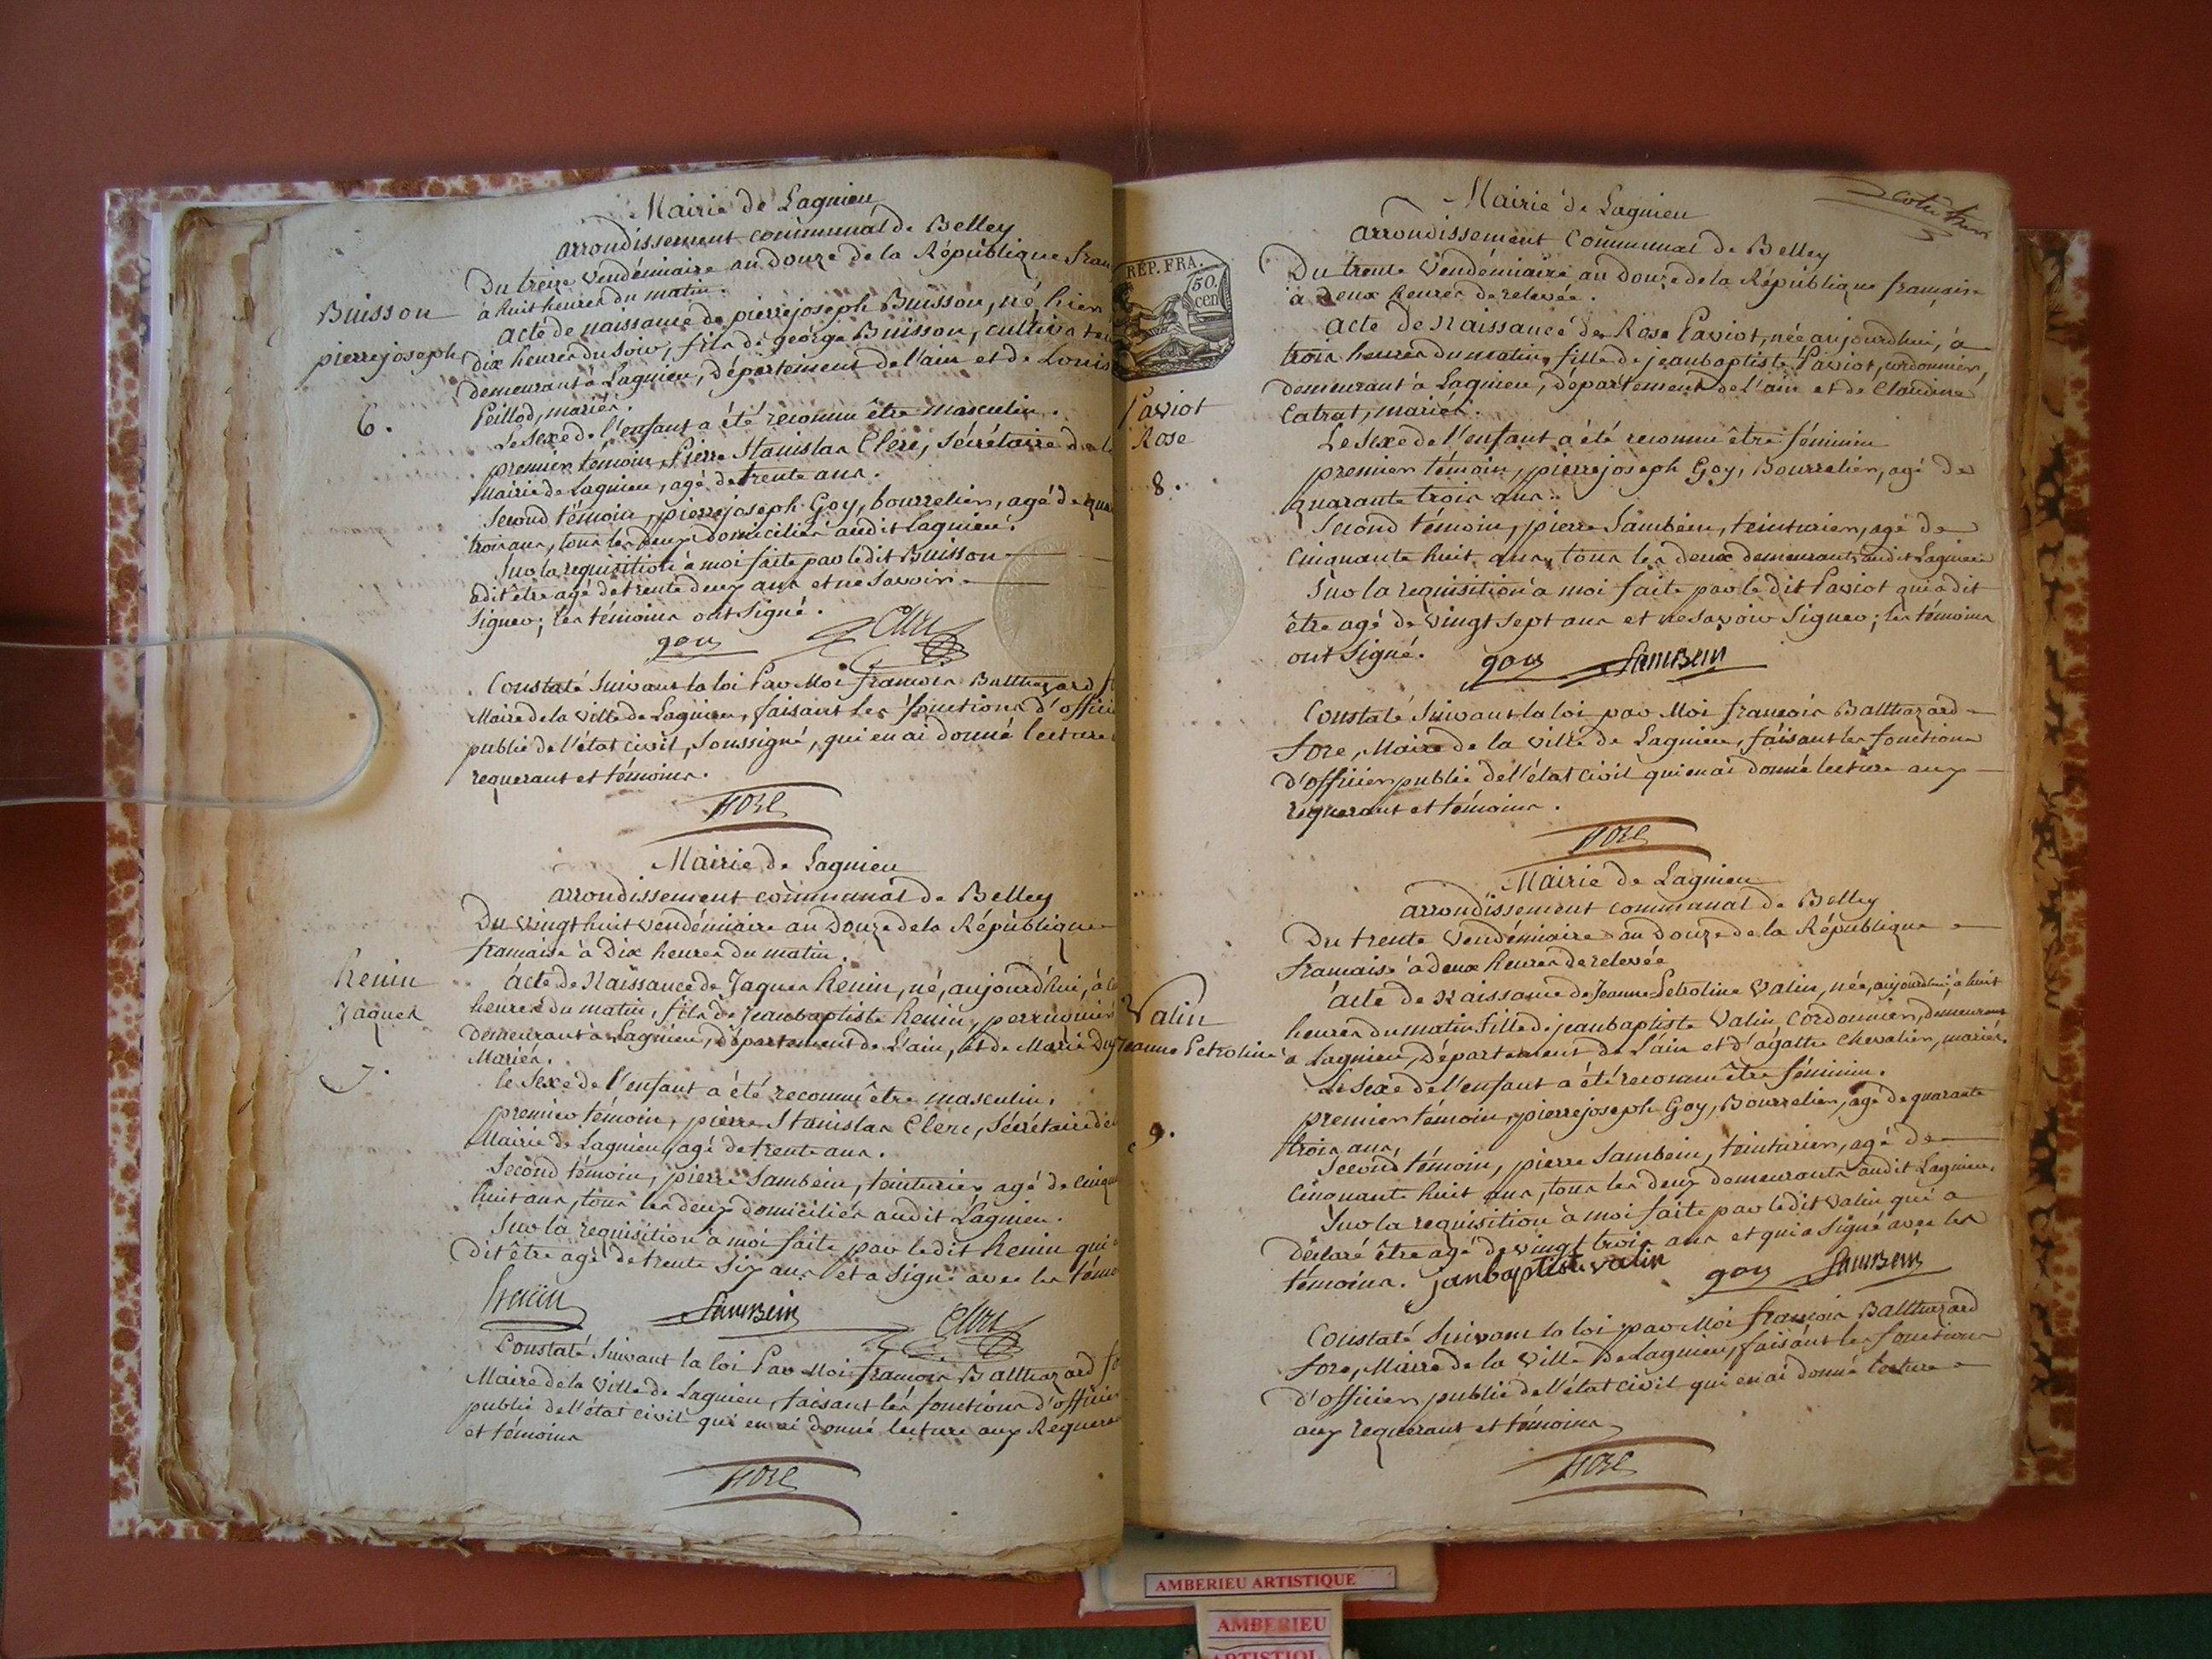 Mairie de Lagnieu
arrondissement communal de Belley
Du treize Vendémiaire an douze de la République fran
à huit heures du matin.
Buisson
pierre joseph
6.
acte de naissance de pierre joseph Buisson, né hier
dix heures du soir, fils de géorge Buisson, cultivateu
demeurant à Lagnieu, département de l'ain et de Louis
Peillod, mariés.
Le sexe de l'enfant a été reconnu être masculin.
premier témoin, Pierre Stanislas Clerc, sécrétaire de la
Mairie de Lagnieu, agé de trente ans.
Second témoin, pierre joseph Goy, bourrelier, agé de qua
trois ans, tous les deux domiciliés audit Lagnieu.
Sur la requisition à moi faite par le dit Buisson
a dit être agé de trente deux ans et ne savoir
signer; les témoins ont signé.
goy Clerc
Constaté suivant la loi Par Moi françois Balthazard f
Maire de la ville de Lagnieu, faisant les fonctions d'offici
public de l'état civil, soussigné, qui en ai donné lecture
requerant et témoins.
fore
Mairie de Lagnieu
arrondissement communal de Belley
Du vingt huit vendémiaire an Douze de la République
française à Dix heures du matin.
henin
Jaques
7.
acte de Naissance de Jaques henin, né, aujourd'hui, à
heures du matin, fils de Jean baptiste henin, perruquier
demeurant à Lagnieu, département de L'ain, et de Marie
Mariés.
le sexe de l'enfant a été reconnu être masculin.
premier témoin, pierre Stanislas Clerc, Sécrétaire de
Mairie de Lagnieu, agé de trente ans.
Second témoin, pierre Sambein, teinturier agé de cinqu
huit ans, tous les deux domiciliés audit Lagnieu.
Sur la requisition à moi faite par le dit henin qui
dit être agé de trente six ans et a signé avec les témo
henin Sambein Clerc
Constaté suivant la loi Par Moi françois Balthazard f
Maire de la ville de Lagnieu, faisant les fonctions d'officier
public de l'état civil qui en ai donné lecture aux Requera
et témoins
fore
Mairie de Lagnieu
arrondissement Communal de Belley
REP. FRA.
50.
cen
Du trente Vendémiaire an douze de la République française
à deux heures de relevée.
Paviot
Rose
8.
acte de Naissance de Rose Paviot, née aujourd'hui, à
trois heures du matin, fille de jean baptiste Paviot, cordonnier,
demeurant à Lagnieu, département de l'ain et de Claudine
Catrat, mariés.
Le Sexe de l'enfant a été reconnu être féminin
premier témoin, pierre joseph Goy, Bourrelier, agé de
quarante trois ans.
Second témoin, pierre Sambein, teinturier, agé de
cinquante huit ans, tous les deux demeurants audit Lagnieu
Sur la requisition à moi faite par le dit Paviot qui a dit
être agé de vingt sept ans et ne savoir signer; les témoins
ont signé. goy Sambein
Constaté suivant la loi par Moi françois Balthazard
fore, Maire de la ville de Lagnieu, faisant les fonctions
d'officier public de l'état civil qui en ai donné lecture aux
requerant et témoins.
fore
Mairie de Lagnieu
arrondissement communal de Belley
Du trente Vendémiaire an Douze de la République
française à deux heures de relevée
Valin
Jeanne Petroline
9.
acte de Naissance de Jeanne Petroline Valin, née, aujourd'hui, à huit
heures du matin fille de jean baptiste Valin Cordonnier, demeurant
à Lagnieu, Département de L'ain et d'agathe Chevalier, mariés.
Le Sexe de l'enfant a été reconnu être féminin.
premier témoin, pierre joseph Goy, Bourrelier, agé de quarante
trois ans,
Second témoin, pierre Sambein, teinturier, agé de
cinquante huit ans, tous les deux demeurants audit Lagnieu.
Sur la requisition à moi faite par le dit Valin qui a
déclaré être agé de vingt trois ans et qui a signé avec les
témoins. jan baptiste valin goy Sambein
Constaté suivant la loi par Moi françois Balthazard
fore, Maire de la Ville de Lagnieu, faisant les fonctions
d'officier public de l'état civil qui en ai donné lecture
aux requerant et témoins
fore
AMBERIEU ARTISTIQUE
AMBERIEU
ARTISTIQU